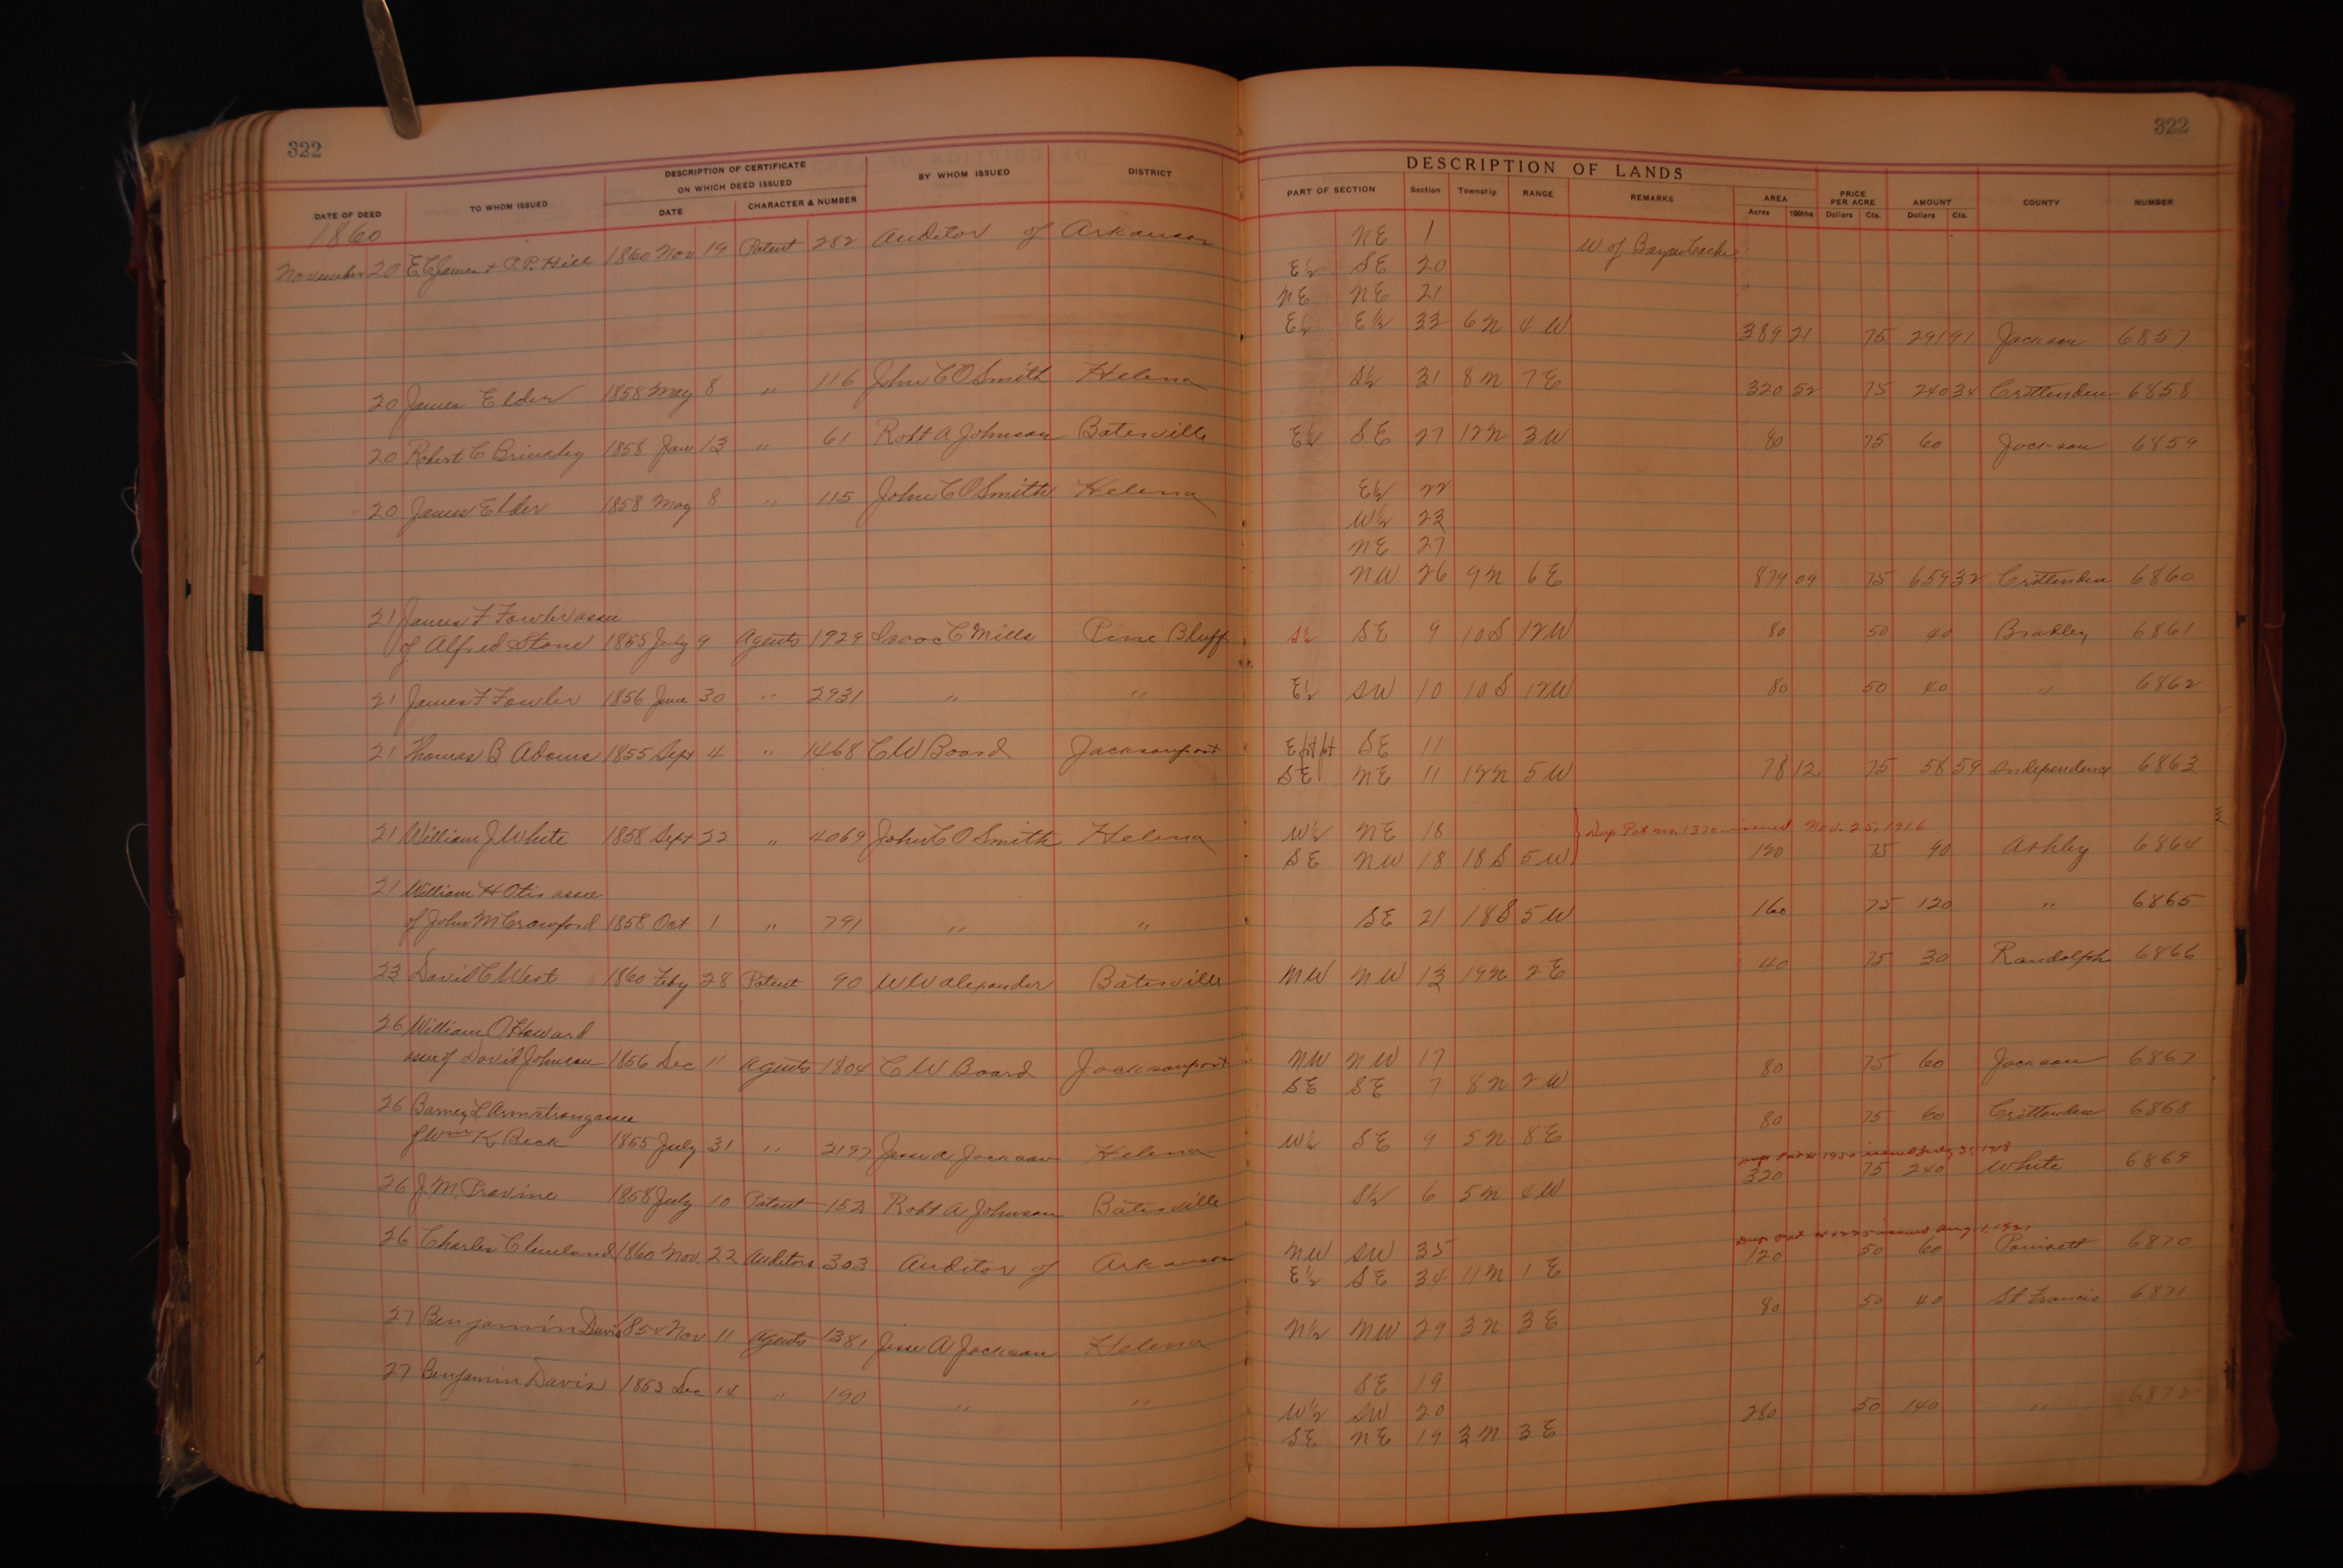 322
DATE OF DEED TO WHOM ISSUED DESCRIPTION OF CERTIFICATE ON WHICH DEED ISSUED DATE CHARACTER & NUMBER BY WHOM ISSUED DISTRICT
1860
November 20 E.C. James & P. Hill 1860 Nov 19 Patent 282 Auditor of Arkansas
20 James Elder 1858 May 8 " 116 John C O Smith Helena
20 Robert C Brinkley 1858 Jan 13 " 61 Robt A Johnson Batesville
20 James Elder 1858 May 8 " 115 John C O Smith Helena
21 James F Fowler assee
of Alfred Stone 1855 July 9 Agents 1929 Isaac C Mills Pine Bluff
21 James F Fowler 1856 June 30 " 2931 " "
21 Thomas B Adams 1855 Sept 4 " 1468 C W Board Jacksonport
21 William J White 1858 Sept 22 " 4069 John C O Smith Helena
21 William H Otis assee
of John M Crawford 1858 Oct 1 " 791 " "
23 David C West 1860 Feby 28 Patent 90 W W Alexander Batesville
26 William O Howard
assee of David Johnson 1856 Dec 11 Agents 1804 C W Board Jacksonport
26 Barney L Armstrong assee
of Wm K Beck 1855 July 31 " 2197 Jesse A Jackson Helena
26 J. M. Pravine 1858 July 10 Patent 152 Robt A Johnson Batesville
26 Charles Cleveland 1860 Nov. 22 Auditors 303 Auditor of Arkansas
27 Benjamin Davis 1854 Nov 11 Agents 1381 Jesse A Jackson Helena
27 Benjamin Davis 1853 Dec 14 " 190 " "
322
DESCRIPTION OF LANDS
PART OF SECTION Section Township RANGE REMARKS AREA Acres 100ths PRICE PER ACRE Dollars Cts. AMOUNT Dollars Cts. COUNTY NUMBER
NE 1 W of Bayou Cache
E½ SE 20
NE NE 21
E½ E½ 33 6N 4W 389 21 75 291 91 Jackson 6857
S½ 31 8N 7E 320 52 75 240 34 Crittenden 6858
E½ SE 27 12N 3W 80 75 60 Jackson 6859
E½ 22
W½ 23
NE 27
NW 26 9N 6E 879 09 75 659 32 Crittenden 6860
S½ SE 9 10S 12W 80 50 40 Bradley 6861
E½ SW 10 10S 12W 80 50 40 " 6862
E pt pt SE 11
SE NE 11 12N 5W 78 12 75 58 59 Independence 6863
W½ NE 18 Dup. Pat no. 1370 issued Nov. 25, 1916
SE NW 18 18S 5W 120 75 90 Ashley 6864
SE 21 18S 5W 160 75 120 " 6865
NW NW 13 19N 2E 40 75 30 Randolph 6866
NW NW 17
SE SE 7 8N 2W 80 75 60 Jackson 6867
W½ SE 9 5N 8E 80 75 60 Crittenden 6868
S½ 6 5N 4W 320 75 240 White 6869
NW SW 35
E½ SE 34 11N 1E 120 50 60 Poinsett 6870
N½ NW 29 3N 3E 80 50 40 St Francis 6871
SE 19
W½ SW 20
SE NE 19 3N 3E 280 50 140 " 6872